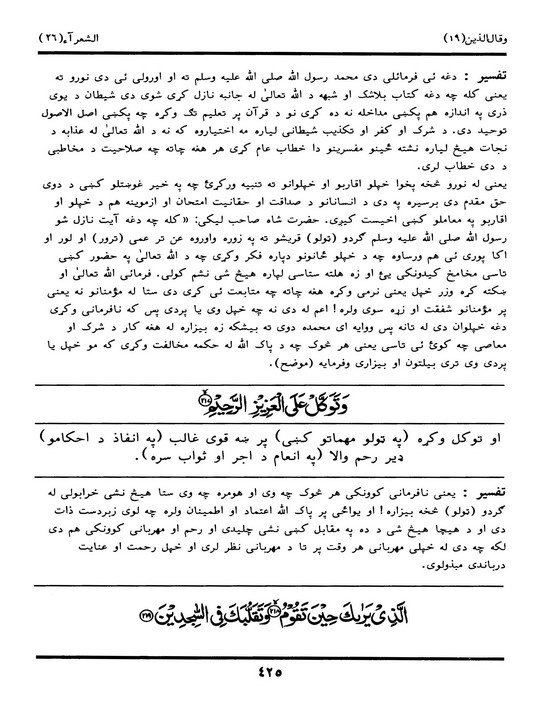 وقال‌الذین(۱۹) الشعرآء(۲۶)
تفسیر : دغه ئی فرمائلی دی محمد رسول الله صلی الله علیه وسلم ته او اورولی ئی دی نورو ته
یعنی کله چه دغه کتاب بلاشک او شبهه د الله تعالیٰ له جانبه نازل کړی شوی دی شیطان د یوی
ذری په اندازه هم پکښی مداخله نه ده کړی نو د قرآن پر تعلیم تګ وکړه چه پکښی اصل الاصول
توحید دی. د شرک او کفر او تکذیب شیطانی لیاره مه اختیاروه که نه د الله تعالیٰ له عذابه د
نجات هیڅ لیاره نشته ځینو مفسرینو دا خطاب عام کړی هر هغه چاته چه صلاحیت د مخاطبی
د دی خطاب لری.
یعنی له نورو څخه پخوا خپلو اقاربو او خپلوانو ته تنبیه ورکړئ چه په خیر غوښتلو کښی د دوی
حق مقدم دی برسیره په دی د انسانانو د صداقت او حقانیت امتحان او ازموینه هم د خپلو او
اقاربو په معاملو کښی اخیست کیږی. حضرت شاه صاحب لیکی: «کله چه دغه آیت نازل شو
رسول الله صلی الله علیه وسلم گردو (ټولو) قریشو ته په زوره واوروه عن تر عمی (ترور) او لور او
اکا پوری ئی هم ورساوه چه د خپلو ځانونو دپاره فکر وکړی چه د الله تعالیٰ په حضور کښی
تاسی مخامخ کیدونکی یئ او زه هلته ستاسی لپاره هیڅ شی نشم کولی. فرمائی الله تعالیٰ او
ښکته کړه وزر خپل یعنی نرمی وکړه هغه چاته چه متابعت ئی کړی دی ستا له مؤمنانو نه یعنی
پر مؤمنانو شفقت او زړه سوی ولره! اعم له دی نه چه خپل وی یا پردی پس که نافرمانی وکړی
دغه خپلوان دی له تانه پس ووایه ای محمده دوی ته بیشکه زه بیزاره له هغه کار د شرک او
معاصی چه کوئ ئی تاسی یعنی هر څوک چه د پاک الله له حکمه مخالفت وکړی که مو خپل یا
پردی وی تری بیلتون او بیزاری وفرمایه (موضح).
وَتَوَكَّلْ عَلَى الْعَزِيزِ الرَّحِيمِ ﴿۲۱۷﴾
او توکل وکړه (په ټولو مهماتو کښی) پر ښه قوی غالب (په انفاذ د احکامو)
ډیر رحم والا (په انعام د اجر او ثواب سره).
تفسیر : یعنی نافرمانی کوونکی هر څوک چه وی او هومره چه وی ستا هیڅ نشی خرابولی له
گردو (ټولو) څخه بیزاره! او یواځی پر پاک الله اعتماد او اطمینان ولره چه لوی زبردست ذات
دی او د هیچا هیڅ شی د ده په مقابل کښی نشی چلیدی او رحم او مهربانی کوونکی هم دی
لکه چه دی له خپلی مهربانی هر وقت پر تا د مهربانی نظر لری او خپل رحمت او عنایت
درباندی مبذولوی.
الَّذِي يَرٰىكَ حِينَ تَقُومُ ﴿۲۱۸﴾ وَتَقَلُّبَكَ فِي السّٰجِدِينَ ﴿۲۱۹﴾
٤٢٥